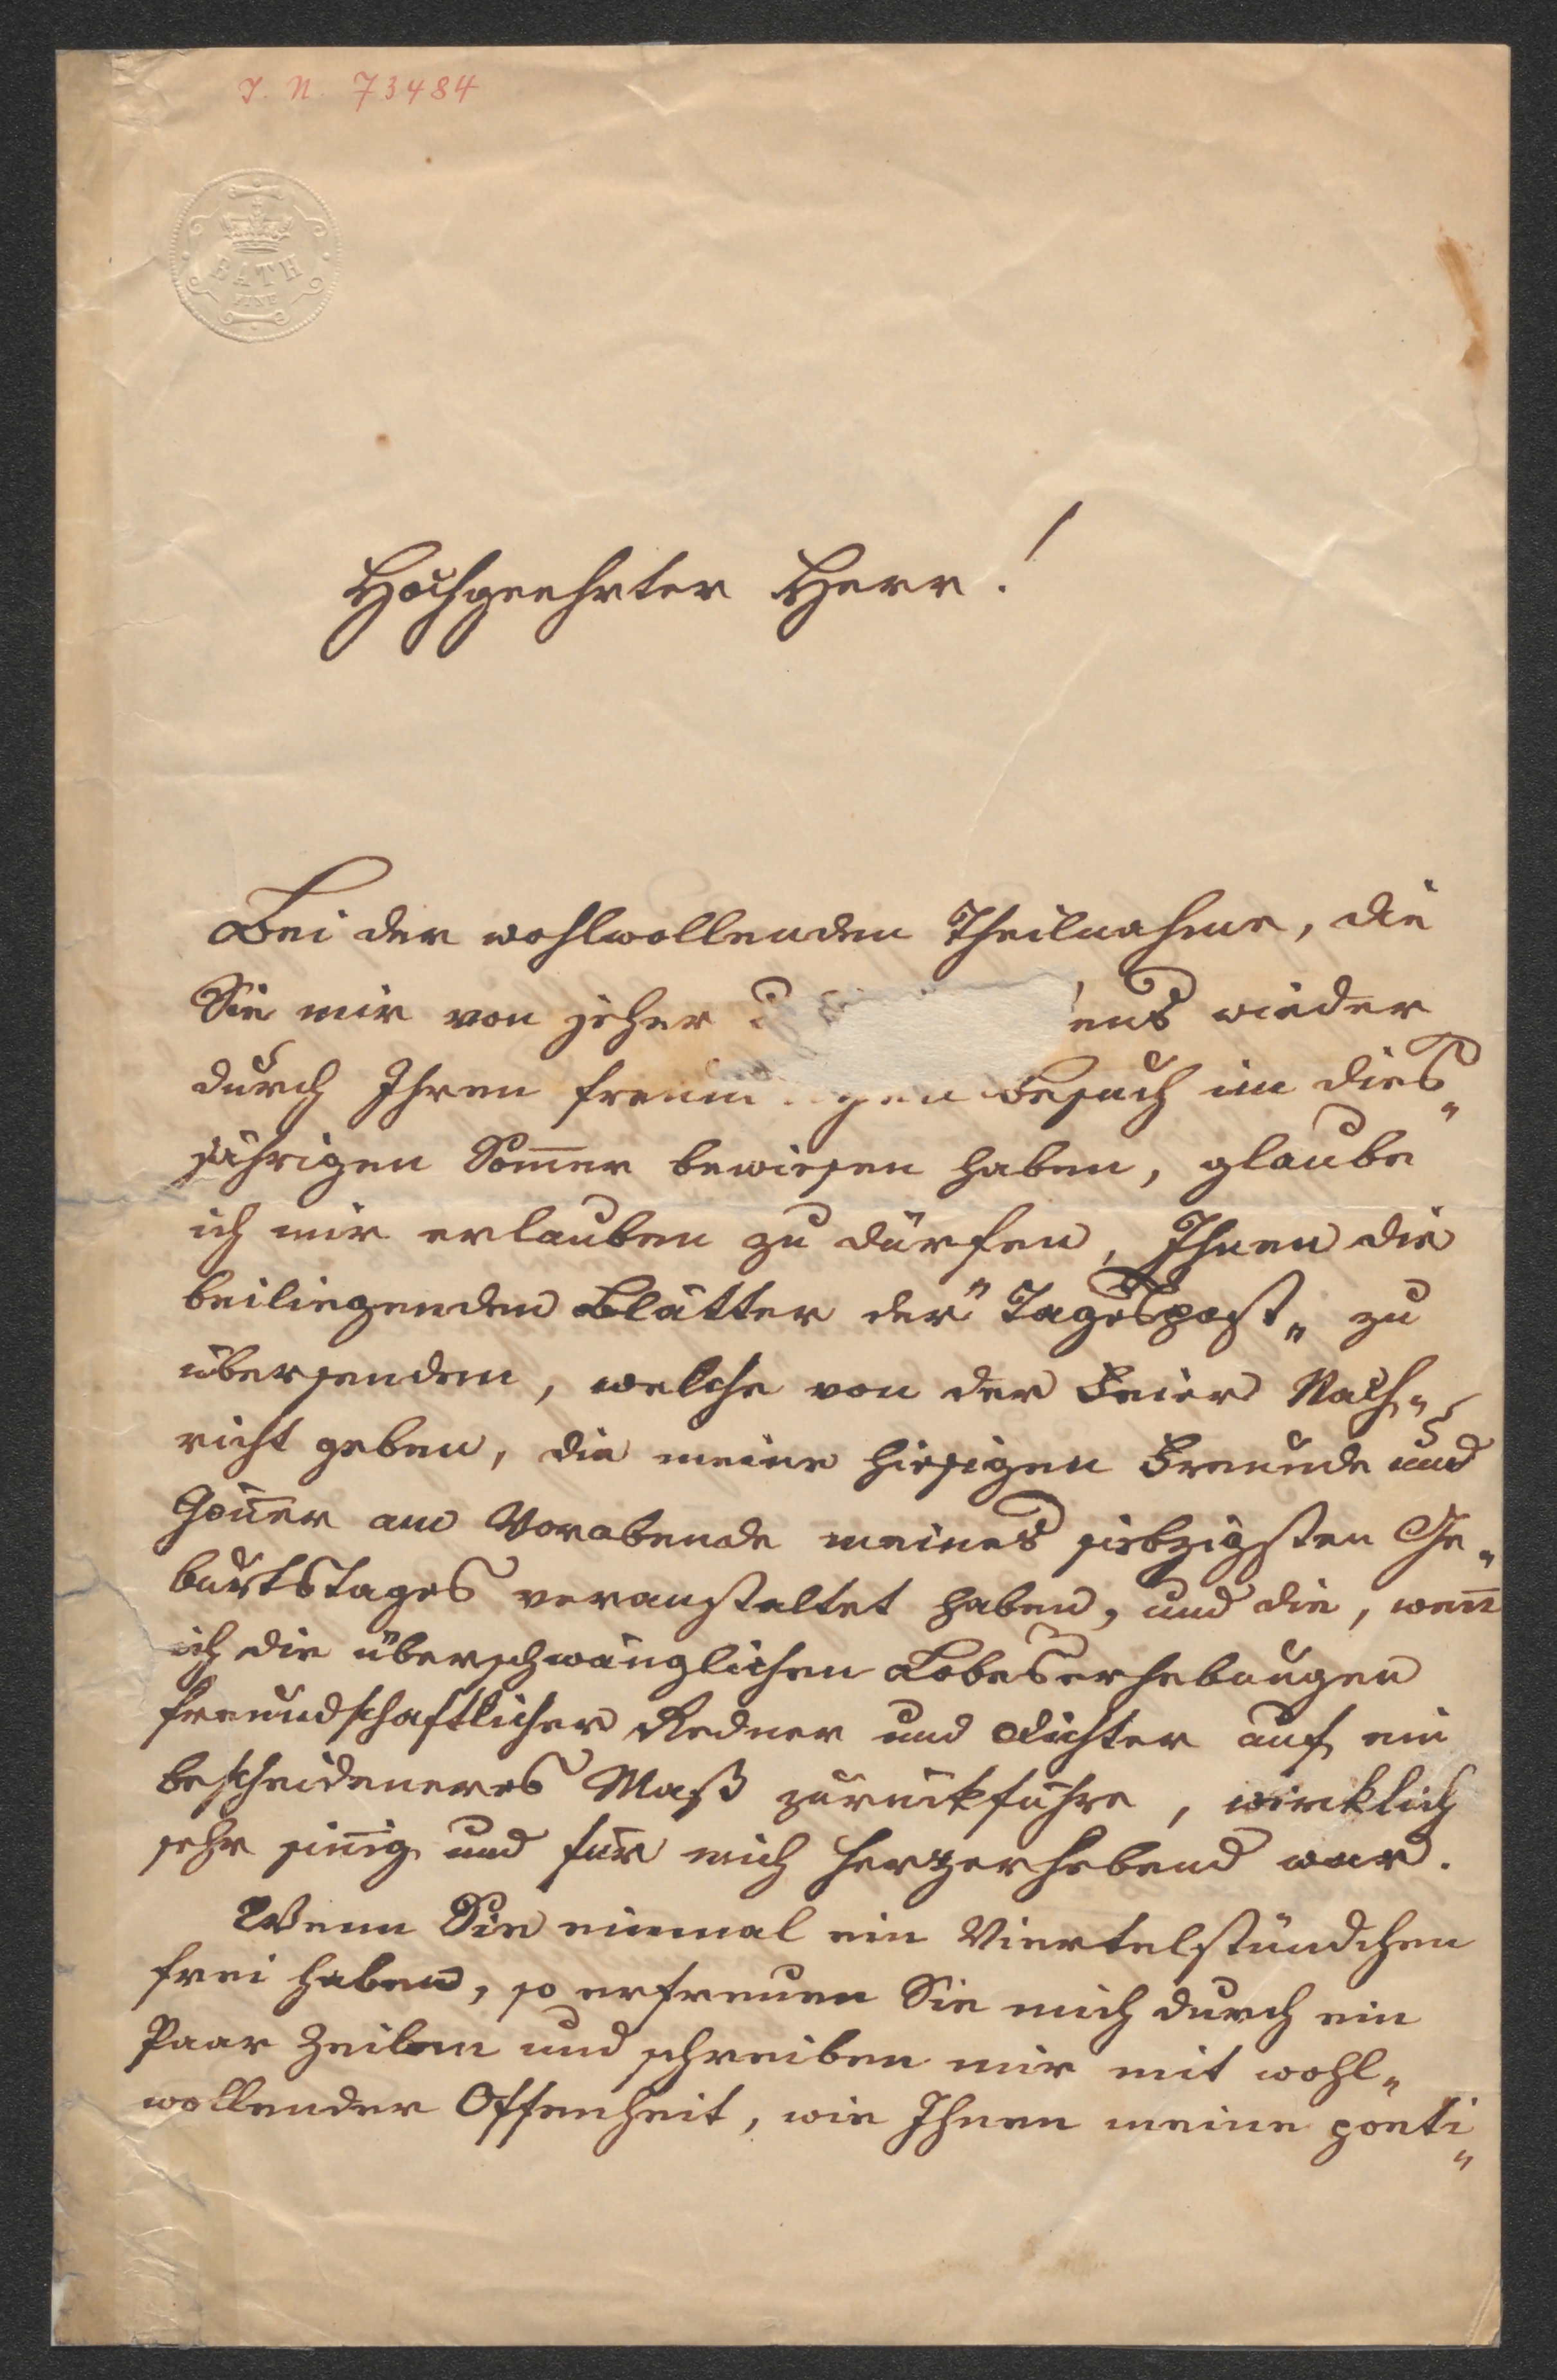 J. N. 73484
BATH
FINE
Hochgeehrter Herr!
Bei der wohlwollenden Theilnahme, die
Sie mir von jeher ens wieder
durch Ihren freun gen Besuch im dies„
jährigen Som̄er bewiesen haben, glaube
ich mir erlauben zu dürfen, Ihnen die
beiliegenden Blätter der "Tagespost„ zu
übersenden, welche von der Feier Nach„
richt geben, die meine hiesigen Freunde und
Gön̄er am Vorabende meines siebzigsten Ge„
burtstages veranstaltet haben, und die, wen̄
ich die überschwänglichen Lobeserhebungen
freundschaftlicher Redner und Dichter auf ein
bescheideneres Maß zurückführe, wircklich
sehr sin̄ig und für mich herzerhebend war.
Wenn Sie einmal ein Viertelstündchen
frei haben, so erfreuen Sie mich durch ein
Paar Zeilen und schreiben mir mit wohl„
wollender Offenheit, wie Ihnen meine poeti„